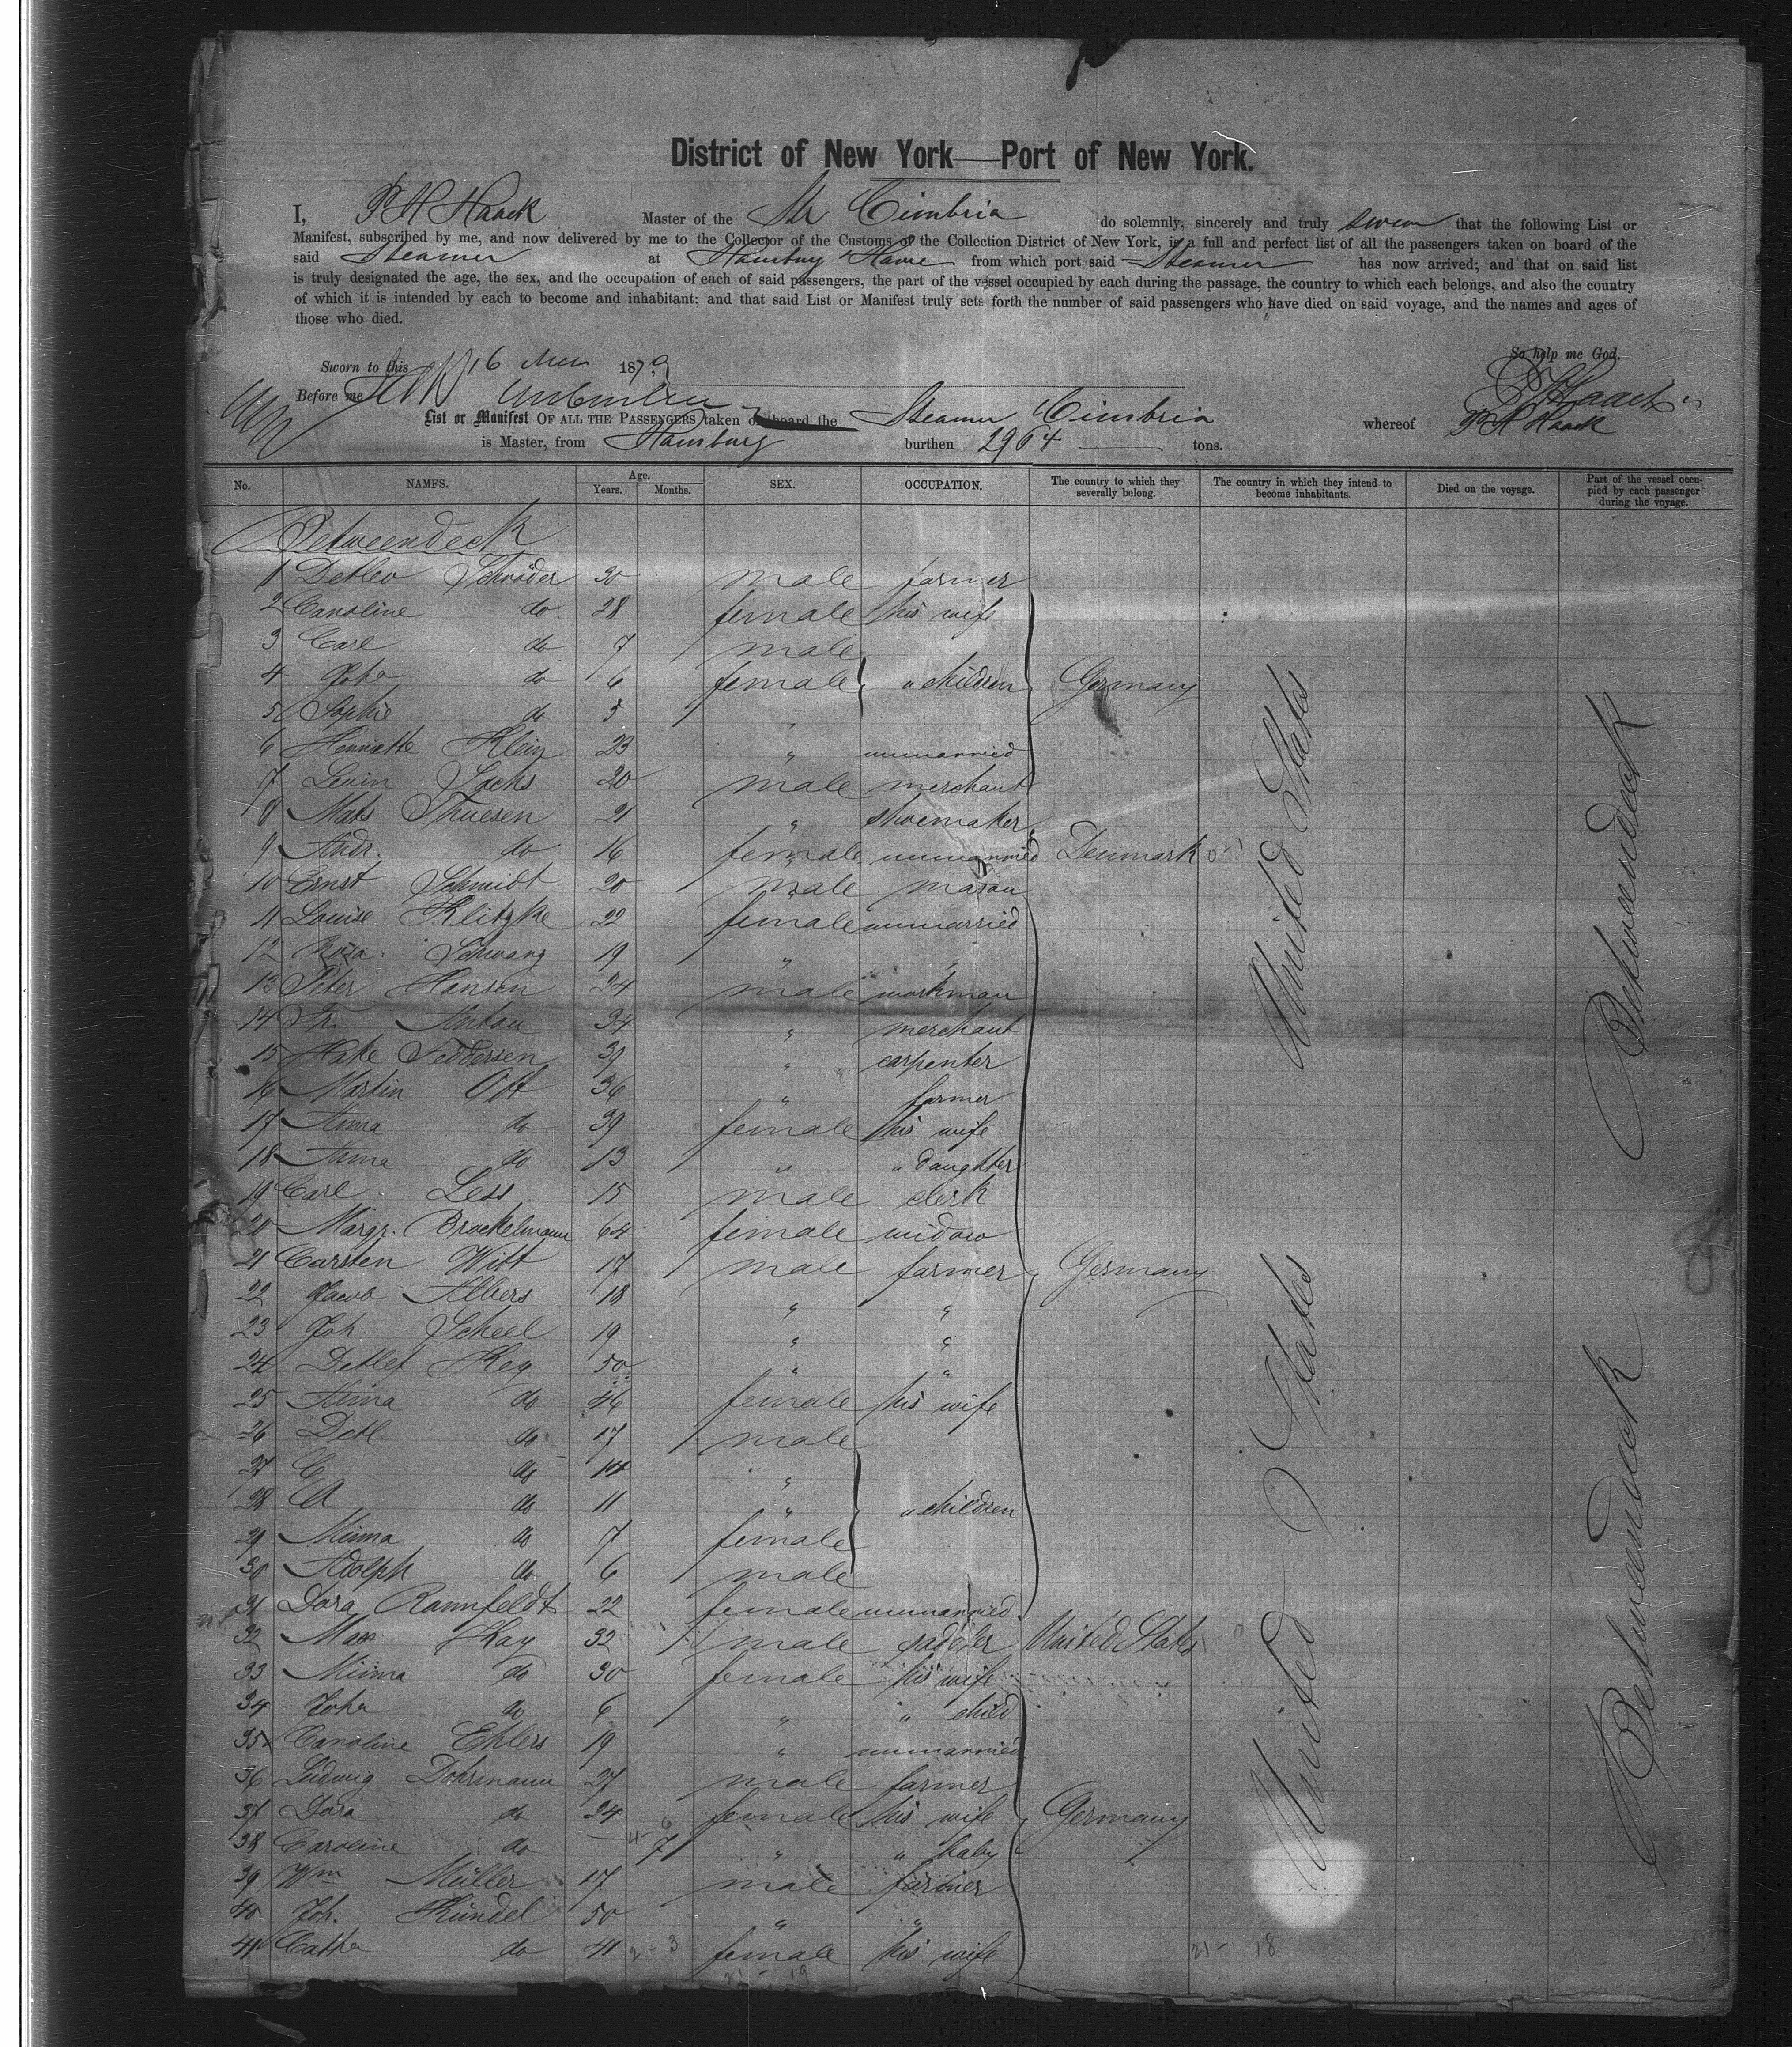 District of New York—Port of New York.
I, P H Haack Master of the Str Cimbria do solemnly, sincerely and truly swear that the following List or
Manifest, subscribed by me, and now delivered by me to the Collector of the Customs of the Collection District of New York, is a full and perfect list of all the passengers taken on board of the
said Steamer at Hamburg & Havre from which port said Steamer has now arrived; and that on said list
is truly designated the age, the sex, and the occupation of each of said passengers, the part of the vessel occupied by each during the passage, the country to which each belongs, and also the country
of which it is intended by each to become and inhabitant; and that said List or Manifest truly sets forth the number of said passengers who have died on said voyage, and the names and ages of
those who died.
So help me God.
Sworn to this 16 1879
Before me
List or Manifest OF ALL THE PASSENGERS taken on board the Steamer Cimbria whereof P H Haack
is Master, from Hamburg burthen 2964 tons.
No. NAMES. Age. Years. Months. SEX. OCCUPATION. The country to which they severally belong. The country in which they intend to become inhabitants. Died on the voyage. Part of the vessel occupied by each passenger during the voyage.
Betweendeck
1 Detlev Schröder 30 male farmer
2 Caroline do 28 female his wife
3 Carl do 7 male
4 Joha do 6 female " children Germany
5 Sophie do 5 "
6 Henriette Klein 23 " unmarried
7 Levin Sachs 20 male merchant
8 Mats Thuesen 21 " shoemaker
9 Andr. do 16 female unmarried Denmark
10 Ernst Schmidt 20 male mason
11 Louise Klitzke 22 female unmarried
12 Rosa Schwarz 19 " "
13 Peter Hansen 24 male workman
14 Fr. Anton 34 " merchant
15 Hake Feddersen 39 " carpenter
16 Martin Ott 36 " farmer
17 Anna do 39 female his wife
18 Anna do 13 " " daughter
19 Carl Less 15 male clerk
20 Margr. Brockelmann 64 female widow
21 Carsten Witt 17 male farmer Germany
22 Jacob Albers 18 " "
23 Joh. Scheel 19 " "
24 Detlef Key 50 " "
25 Anna do 46 female his wife
26 Detl do 17 male
27 C do 14 "
28 A do 11 " " children
29 Minna do 7 female
30 Adolph do 6 male
31 Dora Rannfeldt 22 female unmarried
32 Max Kay 32 male saddler United States
33 Minna do 30 female his wife
34 Joha do 6 " " child
35 Caroline Ehlers 19 " unmarried
36 Ludwig Dohrmann 27 male farmer
37 Dora do 24 female his wife Germany
38 Caroline do — 7 " " baby
39 Wm Müller 17 male farmer
40 Joh. Kündel 50 " "
41 Catha do 41 female his wife
United States
United States
Betweendeck
Betweendeck